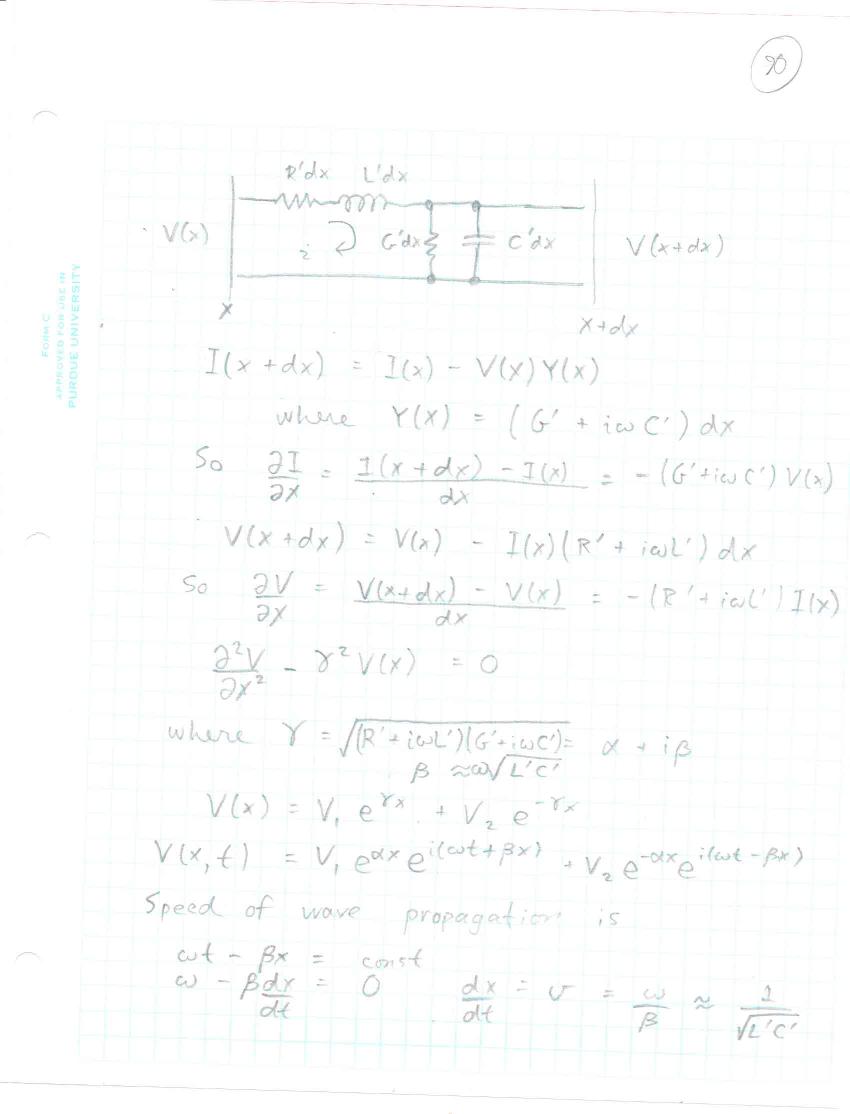 90
R'dx L'dx
V(x) i G'dx C'dx V(x+dx)
x x+dx
FORM C
APPROVED FOR USE IN
PURDUE UNIVERSITY
I(x+dx) = I(x) - V(x)Y(x)
where Y(x) = (G' + iωC')dx
So ∂I/∂x = (I(x+dx) - I(x))/dx = -(G'+iωC')V(x)
V(x+dx) = V(x) - I(x)(R' + iωL')dx
So ∂V/∂x = (V(x+dx) - V(x))/dx = -(R'+iωL')I(x)
∂²V/∂x² - γ²V(x) = 0
where γ = √((R'+iωL')(G'+iωC')) = α + iβ
β ≈ ω√(L'C')
V(x) = V₁ e^{γx} + V₂ e^{-γx}
V(x,t) = V₁ e^{αx} e^{i(ωt+βx)} + V₂ e^{-αx} e^{i(ωt-βx)}
Speed of wave propagation is
ωt - βx = const
ω - β dx/dt = 0 dx/dt = v = ω/β ≈ 1/√(L'C')